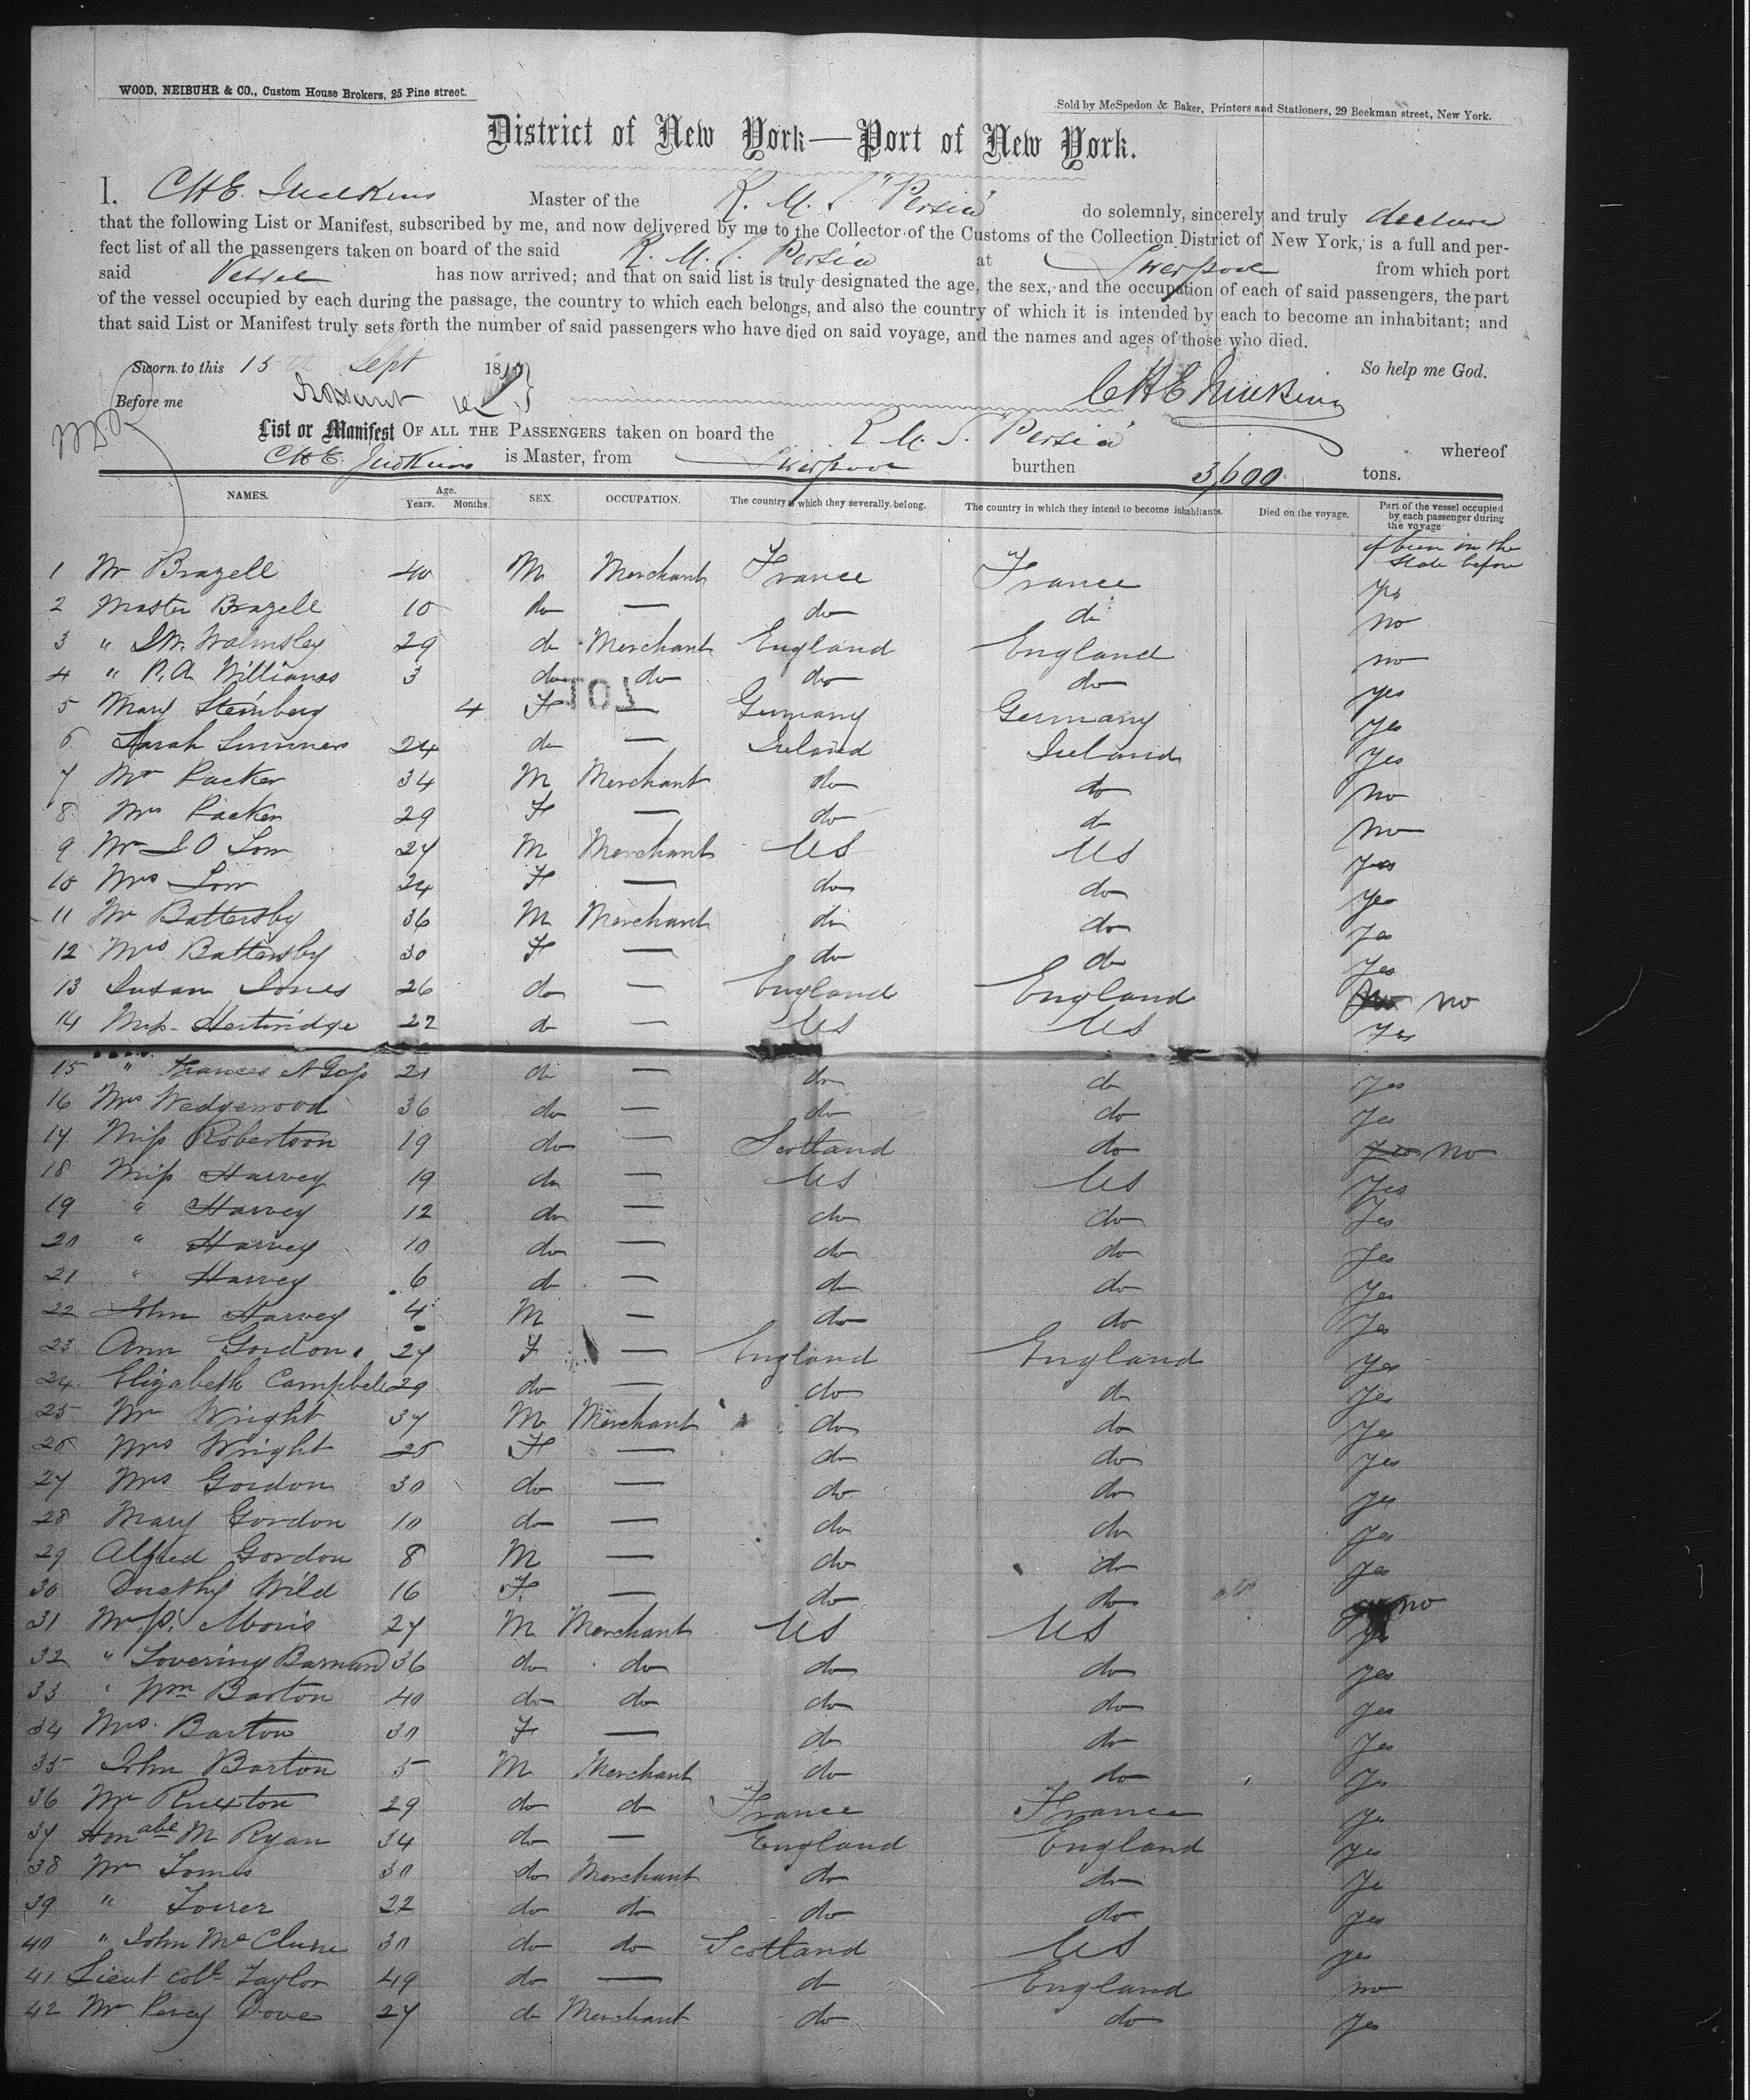 WOOD, NEIBUHR & CO., Custom House Brokers, 25 Pine street.
Sold by McSpedon & Baker, Printers and Stationers, 29 Beekman street, New York.
District of New York—Port of New York.
I, CHE. Judkins Master of the R. M. S. "Persia" do solemnly, sincerely and truly declare
that the following List or Manifest, subscribed by me, and now delivered by me to the Collector of the Customs of the Collection District of New York, is a full and per-
fect list of all the passengers taken on board of the said R. M. S. Persia at Liverpool from which port
said Vessel has now arrived; and that on said list is truly designated the age, the sex, and the occupation of each of said passengers, the part
of the vessel occupied by each during the passage, the country to which each belongs, and also the country of which it is intended by each to become an inhabitant; and
that said List or Manifest truly sets forth the number of said passengers who have died on said voyage, and the names and ages of those who died.
Sworn to this 15 Sept 18 So help me God.
Before me CHE Judkins
List or Manifest OF ALL THE PASSENGERS taken on board the R. M. S. "Persia" whereof
CHE. Judkins is Master, from Liverpool burthen 3,600 tons.
NAMES. Age. Years. Months. SEX. OCCUPATION. The country to which they severally belong. The country in which they intend to become inhabitants. Died on the voyage. Part of the vessel occupied by each passenger during the voyage
if been in the State before
1 Mr Brazell 40 M Merchant France France Yes
2 Master Brazell 10 do — do do no
3 " J.W. Walmsley 29 do Merchant England England no
4 " P.A. Williams 3 do do do do yes
107
5 Mary Steinberg 4 F — Germany Germany Yes
6 Sarah Summers 24 do — Ireland Ireland Yes
7 Mr Packer 34 M Merchant do do no
8 Mrs Packer 29 F — do do no
9 Mr J O Low 27 M Merchant US US Yes
10 Mrs Low 24 F — do do Yes
11 Mr Battersby 36 M Merchant do do Yes
12 Mrs Battersby 30 F — do do Yes
13 Susan Jones 26 do — England England no
14 Miss Hertridge 22 do — US US Yes
15 " Frances N Goss 21 do — do do Yes
16 Mrs Wedgewood 36 do — do do Yes
17 Miss Robertson 19 do — Scotland do Yes no
18 Miss Harvey 19 do — US US Yes
19 " Harvey 12 do — do do Yes
20 " Harvey 10 do — do do Yes
21 " Harvey 6 do — do do Yes
22 John Harvey 4 M — do do Yes
23 Ann Gordon 27 F — England England Yes
24 Elizabeth Campbell 29 do — do do Yes
25 Mr Wright 37 M Merchant do do Yes
26 Mrs Wright 25 F — do do Yes
27 Mrs Gordon 30 do — do do yes
28 Mary Gordon 10 do — do do Yes
29 Alfred Gordon 8 M — do do Yes
30 Dorothy Wild 16 F — do do no
31 Mr P. Moris 27 M Merchant US US Yes
32 " Lovering Barnard 36 do do do do yes
33 " Wm Barton 40 do do do do yes
34 Mrs. Barton 30 F — do do Yes
35 John Barton 5 M Merchant do do Yes
36 Mr Ruxton 29 do do France France Ye
37 Honable M Ryan 34 do — England England Yes
38 Mr Tomes 30 do Merchant do do Ye
39 " 22 do do do do Yes
40 " John McClure 30 do do Scotland US yes
41 Lieut Coll Taylor 49 do — do England no
42 Mr Percy Dove 27 do Merchant do do Yes